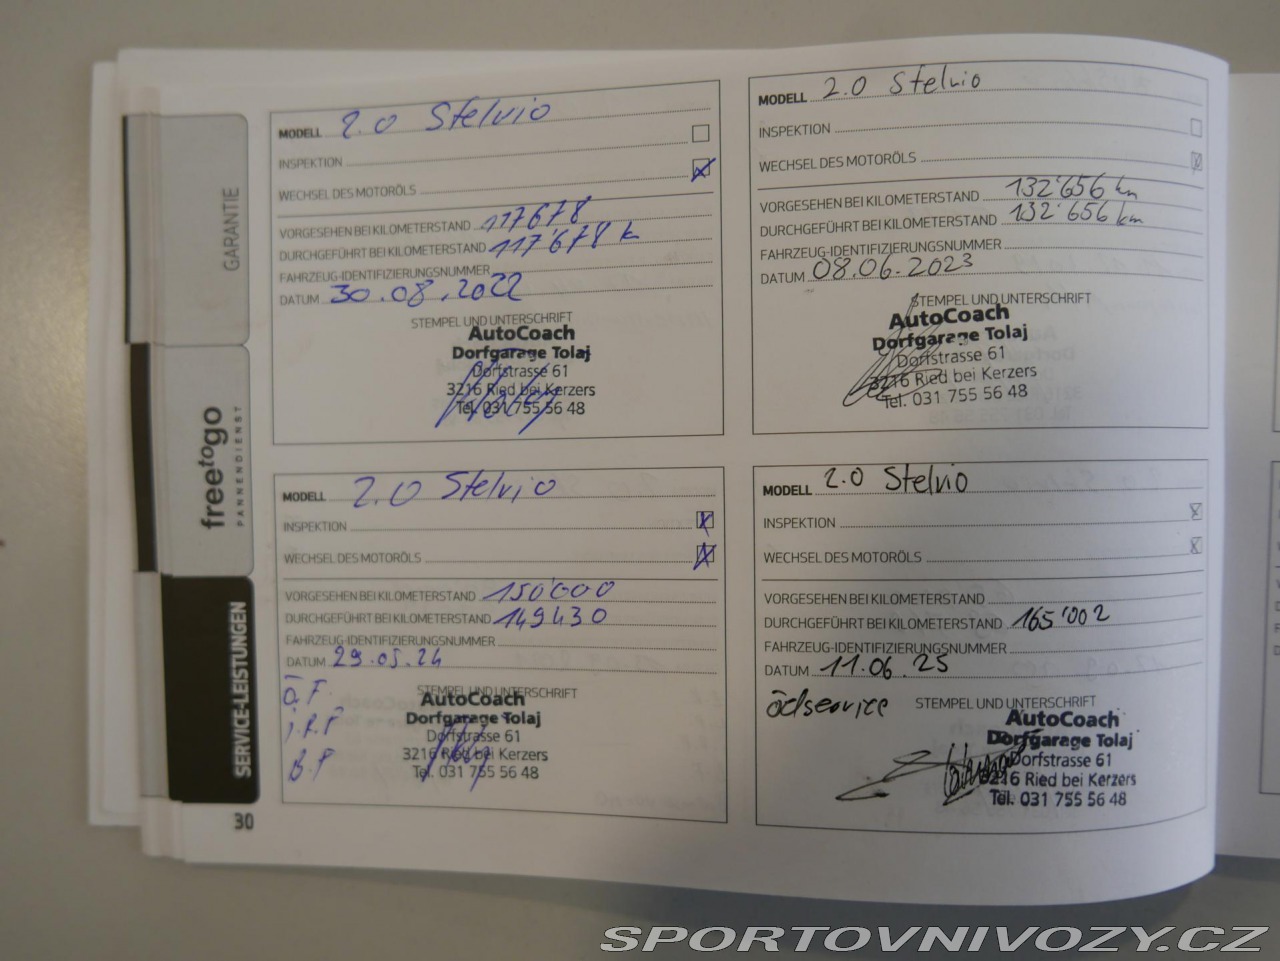 GARANTIE
freetogo
PANNENDIENST
SERVICE-LEISTUNGEN
30
MODELL 2.0 Stelvio
INSPEKTION
WECHSEL DES MOTORÖLS
VORGESEHEN BEI KILOMETERSTAND 117678
DURCHGEFÜHRT BEI KILOMETERSTAND 117'678 k
FAHRZEUG-IDENTIFIZIERUNGSNUMMER
DATUM 30.08.2022
STEMPEL UND UNTERSCHRIFT
AutoCoach
Dorfgarage Tolaj
Dorfstrasse 61
3216 Ried bei Kerzers
Tel. 031 755 56 48
MODELL 2.0 Stelvio
INSPEKTION
WECHSEL DES MOTORÖLS
VORGESEHEN BEI KILOMETERSTAND 132'656 km
DURCHGEFÜHRT BEI KILOMETERSTAND 132'656 km
FAHRZEUG-IDENTIFIZIERUNGSNUMMER
DATUM 08.06.2023
STEMPEL UND UNTERSCHRIFT
AutoCoach
Dorfgarage Tolaj
Dorfstrasse 61
3216 Ried bei Kerzers
Tel. 031 755 56 48
MODELL 2.0 Stelvio
INSPEKTION
WECHSEL DES MOTORÖLS
VORGESEHEN BEI KILOMETERSTAND 150'000
DURCHGEFÜHRT BEI KILOMETERSTAND 149430
FAHRZEUG-IDENTIFIZIERUNGSNUMMER
DATUM 29.05.24
Ö.F.
I.R.F
B.F
STEMPEL UND UNTERSCHRIFT
AutoCoach
Dorfgarage Tolaj
Dorfstrasse 61
3216 Ried bei Kerzers
Tel. 031 755 56 48
MODELL 2.0 Stelvio
INSPEKTION
WECHSEL DES MOTORÖLS
VORGESEHEN BEI KILOMETERSTAND
DURCHGEFÜHRT BEI KILOMETERSTAND 165'002
FAHRZEUG-IDENTIFIZIERUNGSNUMMER
DATUM 11.06.25
STEMPEL UND UNTERSCHRIFT
AutoCoach
Dorfgarage Tolaj
Dorfstrasse 61
3216 Ried bei Kerzers
Tel. 031 755 56 48
SPORTOVNIVOZY.CZ